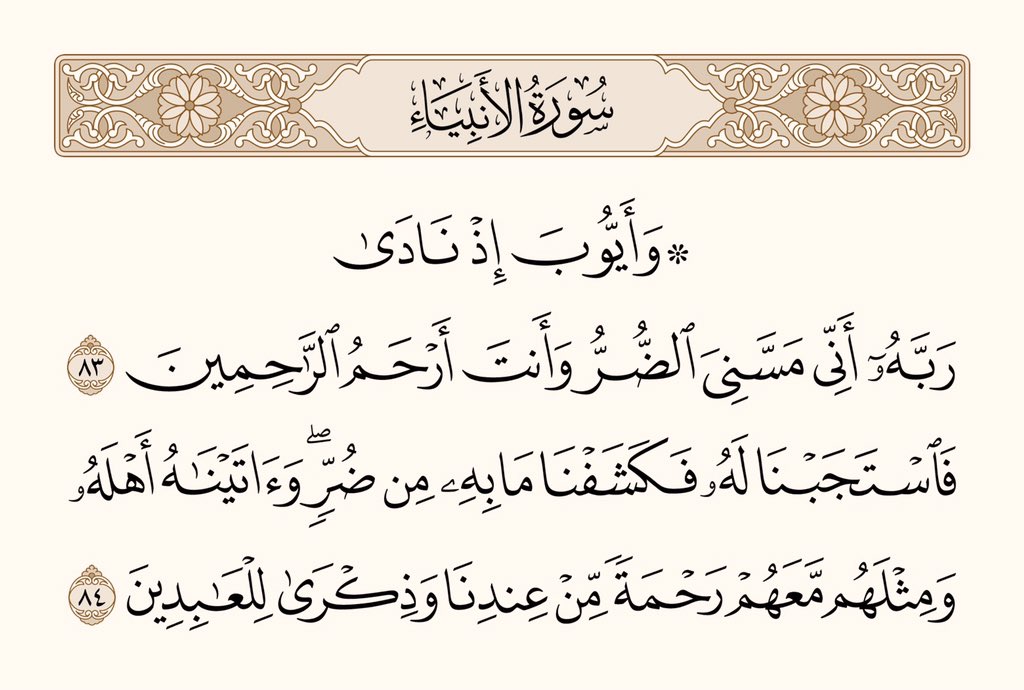 سُورَةُ الأَنبِيَاءِ
۞ وَأَيُّوبَ إِذْ نَادَىٰ
رَبَّهُۥٓ أَنِّي مَسَّنِيَ ٱلضُّرُّ وَأَنتَ أَرْحَمُ ٱلرَّٰحِمِينَ ٨٣
فَٱسْتَجَبْنَا لَهُۥ فَكَشَفْنَا مَا بِهِۦ مِن ضُرٍّۖ وَءَاتَيْنَٰهُ أَهْلَهُۥ
وَمِثْلَهُم مَّعَهُمْ رَحْمَةً مِّنْ عِندِنَا وَذِكْرَىٰ لِلْعَٰبِدِينَ ٨٤